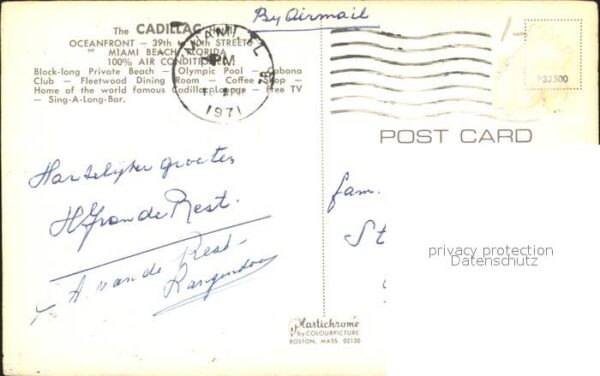 The CADILLAC
OCEANFRONT – 39th to 40th STREETS
MIAMI BEACH, FLORIDA
100% AIR CONDITIONED
Block-long Private Beach — Olympic Pool — Cabana
Club — Fleetwood Dining Room — Coffee Shop —
Home of the world famous Cadillac Lounge — Free TV
— Sing-A-Long-Bar.
By Airmail
MIAMI, FL
PM
1971
P32500
POST CARD
Hartelijke groeten
H v an de Rest.
A. van de Rest-
fam.
St
privacy protection
Datenschutz
Plastichrome
by COLOURPICTURE
BOSTON, MASS. 02130